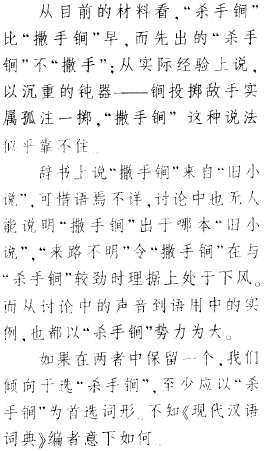 从目前的材料看,“杀手锏”
比“撒手锏”早,而先出的“杀手
锏”不“撒手”;从实际经验上说,
以沉重的钝器——锏投掷敌手实
属孤注一掷,“撒手锏”这种说法
似乎靠不住。
辞书上说“撒手锏”来自“旧小
说”,可惜语焉不详,讨论中也无人
能说明“撒手锏”出于哪本“旧小
说”,“来路不明”令“撒手锏”在与
“杀手锏”较劲时理据上处于下风。
而从讨论中的声音到语用中的实
例,也都以“杀手锏”势力为大。
如果在两者中保留一个,我们
倾向于选“杀手锏”,至少应以“杀
手锏”为首选词形。不知《现代汉语
词典》编者意下如何。